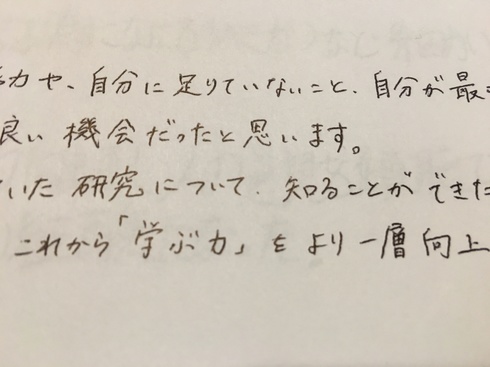 力や、自分に足りていないこと、自分が最
良い機会だったと思います。
いた研究について、知ることができた
これから「学ぶ力」をより一層向上